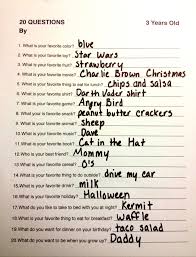 20 QUESTIONS 3 Years Old
By
1. What is your favorite color? blue
2. What is your favorite toy? Star Wars
3. What is your favorite fruit? Strawberry
4. What is your favorite movie? Charlie Brown Christmas
5. What is your favorite thing to eat for lunch? chips and salsa
6. What is your favorite outfit? Darth Vader Shirt
7. What is your favorite game? Angry Bird
8. What is your favorite snack? peanut butter crackers
9. What is your favorite animal? sheep
10. What is your favorite song? Dave
11. What is your favorite book? Cat in the Hat
12. Who is your best friend? Mommy
13. What is your favorite cereal? O's
14. What is your favorite thing to do outside? drive my car
15. What is your favorite drink? milk
16. What is your favorite holiday? Halloween
17. What do you like to take to bed with you at night? Kermit
18. What is your favorite thing to eat for breakfast? waffle
19. What do you want for dinner on your birthday? taco salad
20. What do you want to be when you grow up? Daddy